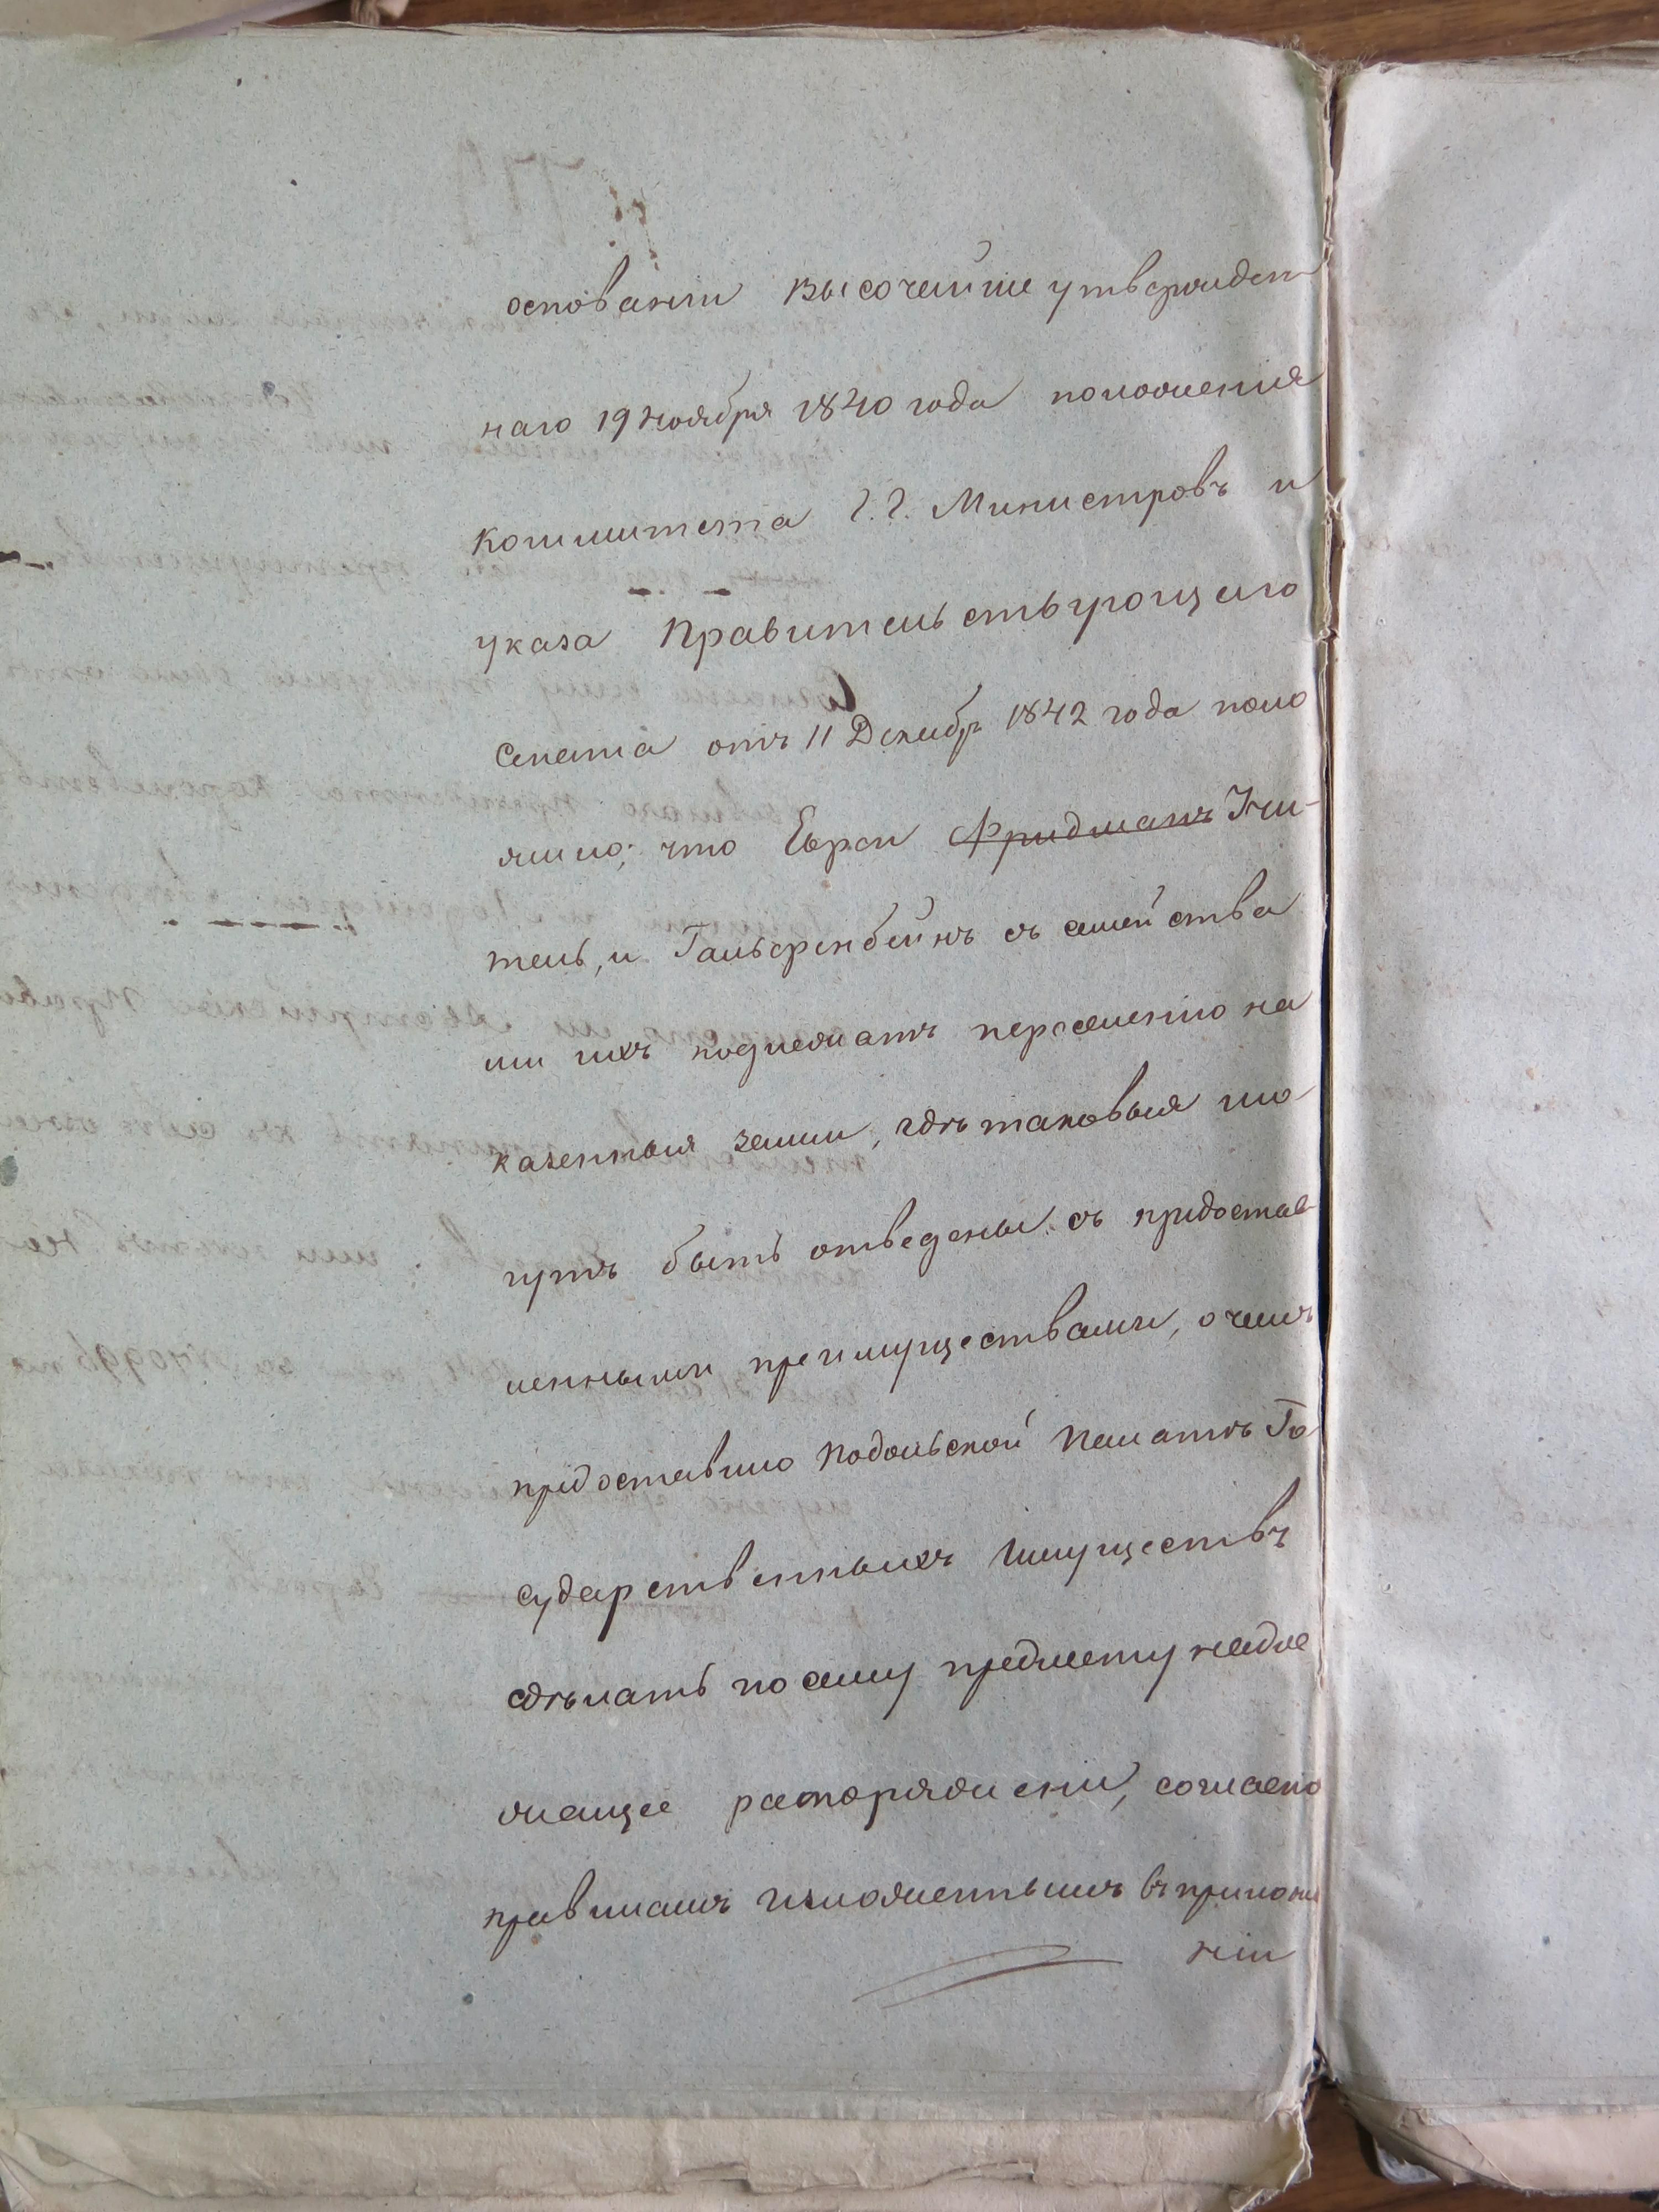 основаніи Высочейше утвержден
наго 19 Ноября 1840 года положенія
коммитета Г.Г. Министровъ и
указа Правительствующаго
Сената отъ 11 Декабр 1842 года пола
гало; что Евреи Фридманъ Учи-
тель, и Гальперенбейнъ съ семейства
ми ихъ подлежатъ переселенію на
казенныя земли, гдѣ таковыя мо
гутъ быть отведены съ придостав
ленными преимуществами, о чемъ
придоставило Подольской Палатѣ Го
сударственныхъ Имуществъ
сдѣлать по сему предмету надле
жащее распоряженіи, согласно
правиламъ изложеннымъ въ приложе
ніи